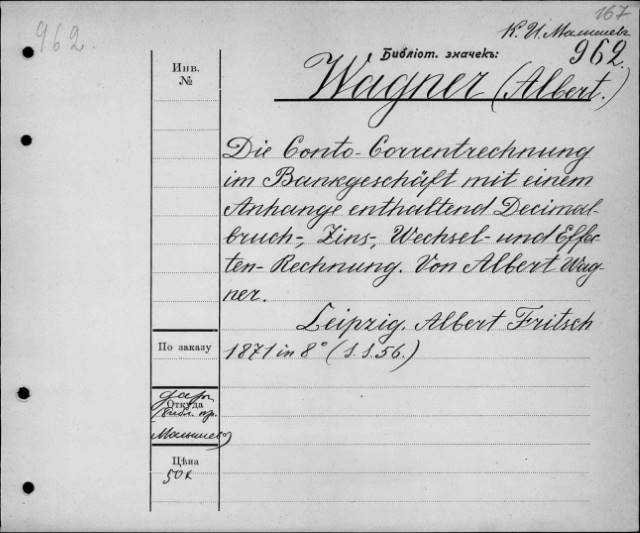 167
962.
К. И. Малышевъ
Библіот. значекъ:
962.
Инв.
№
Wagner (Albert.)
Die Conto-Correntrechnung
im Bankgeschäft mit einem
Anhange enthaltend Decimal-
bruch-, Zins-, Wechsel- und Effec-
ten-Rechnung. Von Albert Wag-
ner.
Leipzig. Albert Fritsch
По заказу
1871 in 8° (S. S. 56.)
даръ
Откуда
(библ. пр.
Малышева)
Цѣна
50 к